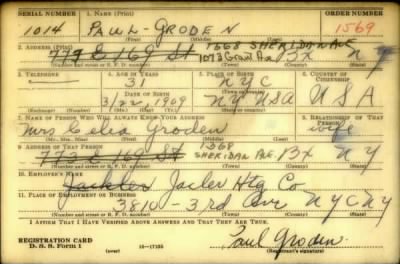 SERIAL NUMBER 1. NAME (Print) ORDER NUMBER
1014 PAUL - GRODEN 1569
(First) (Middle) (Last)
2. ADDRESS (Print) 1568 SHERIDAN Ave
779 E 169 St 1073 Grant Ave Bx N Y
(Number and street or R. F. D. number) (Town) (County) (State)
3. TELEPHONE 4. AGE IN YEARS 5. PLACE OF BIRTH 6. COUNTRY OF CITIZENSHIP
31 NYC
DATE OF BIRTH (Town or county)
3/22/1909 NY USA USA
(Exchange) (Number) (Mo.) (Day) (Yr.) (State or country)
7. NAME OF PERSON WHO WILL ALWAYS KNOW YOUR ADDRESS 8. RELATIONSHIP OF THAT PERSON
Mrs Celia Groden wife
(Mr., Mrs., Miss) (First) (Middle) (Last)
9. ADDRESS OF THAT PERSON 1568
779 E 169 St SHERIDAN AVE. Bx N Y
(Number and street or R. F. D. number) (Town) (County) (State)
10. EMPLOYER'S NAME
Jacler Htg Co
11. PLACE OF EMPLOYMENT OR BUSINESS
3810 - 3rd Ave NYC NY
(Number and street or R. F. D. number) (Town) (County) (State)
I AFFIRM THAT I HAVE VERIFIED ABOVE ANSWERS AND THAT THEY ARE TRUE.
REGISTRATION CARD
D. S. S. Form 1 (over) 16-17105 Paul Groden
(Registrant's signature)